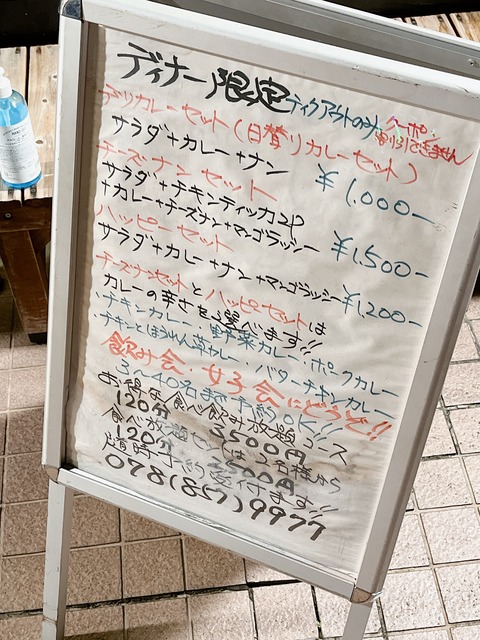 ディナー限定 テイクアウトのみ クーポン割引できません
デリカレーセット(日替りカレーセット)
サラダ+カレー+ナン ¥1,000-
チーズナンセット
サラダ+チキンティッカ2P
+カレー+チーズナン+マンゴラッシー ¥1,500-
ハッピーセット
サラダ+カレー+ナン+マンゴラッシー ¥1,200-
チーズナンセットとハッピーセットは
カレーの辛さを選べます!!
・チキンカレー・野菜カレー・ポークカレー
・チキンとほうれん草カレー・バターチキンカレー
飲み会・女子会にどうぞ!!
3〜40名まで予約OK!!
お得な食べ飲み放題コース
120分 3500円
食べ放題セットは2名様から
120分 2500円
随時予約受付ます!!
078(857)9977